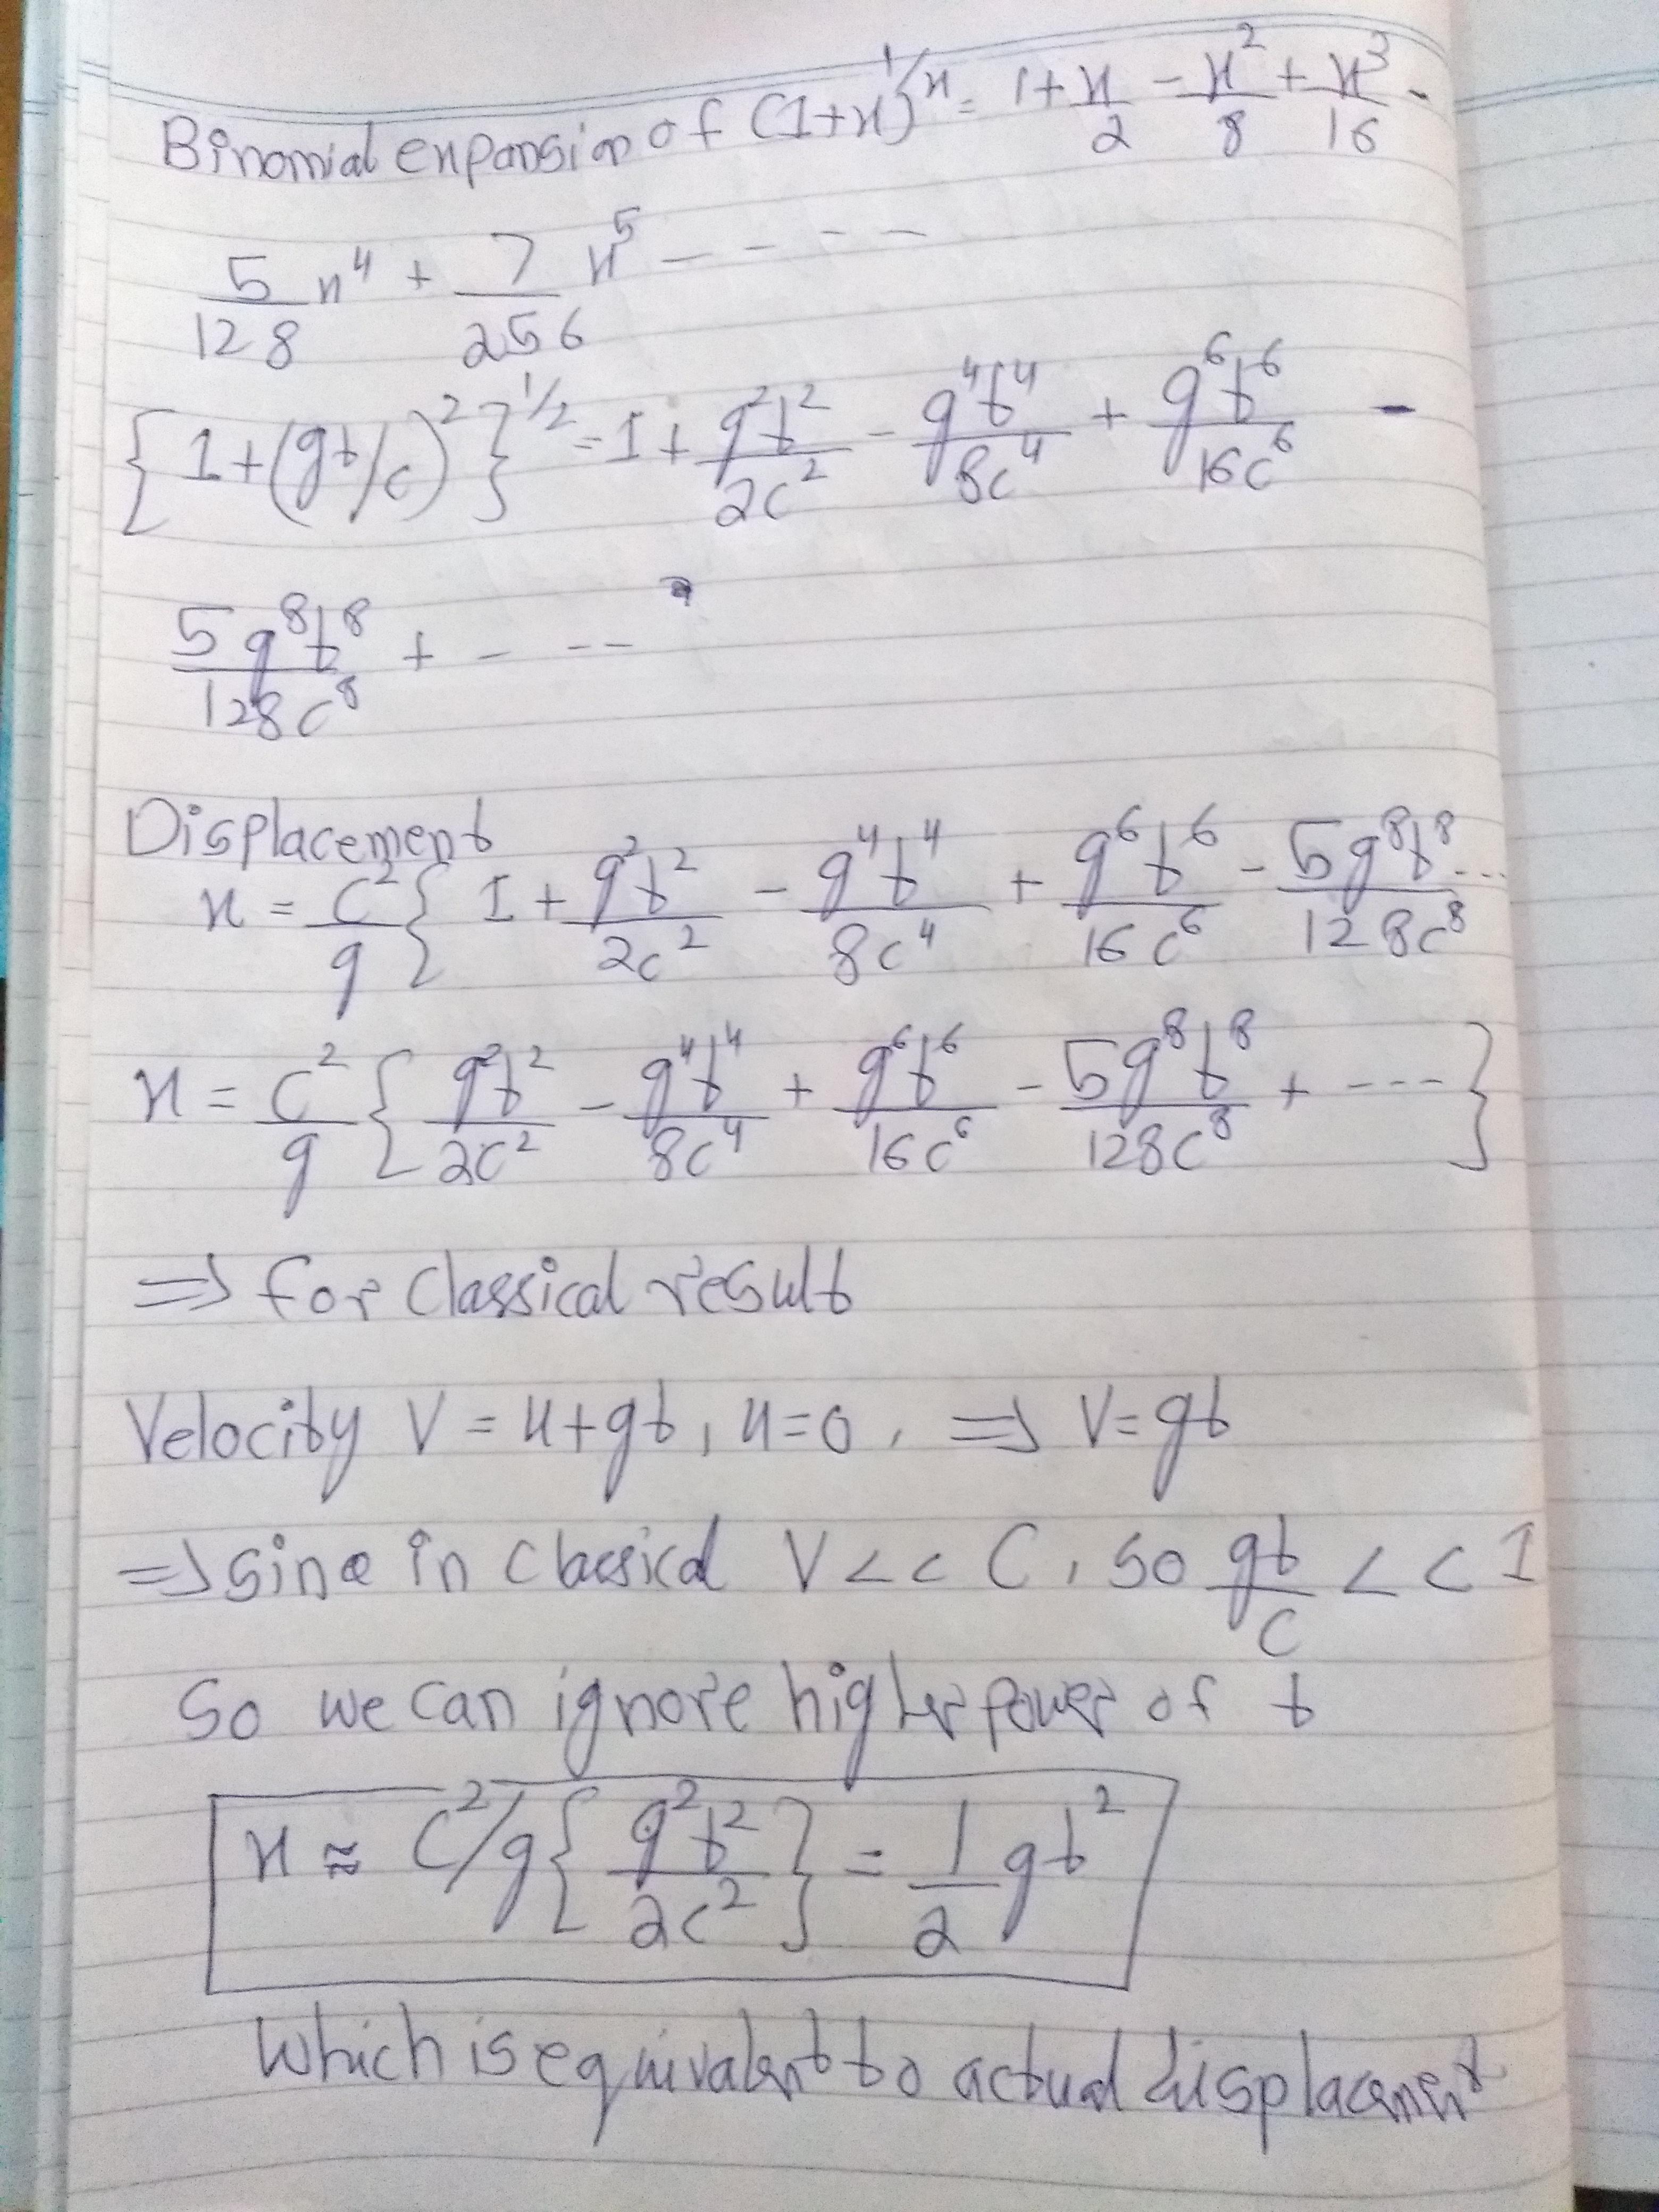 Binomial expansion of (1+x)^1/x = 1 + x/2 - x²/8 + x³/16 -
5/128 x⁴ + 7/256 x⁵ - - - -
{1+(gt/c)²}^1/2 = 1 + g²t²/2c² - g⁴t⁴/8c⁴ + g⁶t⁶/16c⁶ -
5g⁸t⁸/128c⁸ + - - -
Displacement
x = c²/g { 1 + g²t²/2c² - g⁴t⁴/8c⁴ + g⁶t⁶/16c⁶ - 5g⁸t⁸/128c⁸ ...
x = c²/g { g²t²/2c² - g⁴t⁴/8c⁴ + g⁶t⁶/16c⁶ - 5g⁸t⁸/128c⁸ + - - - }
⇒ for classical result
Velocity V = u+gt, u=0, ⇒ V=gt
⇒ sine in classical V << C, so gt/c << 1
So we can ignore higher power of t
x ≈ c²/g { g²t²/2c² } = 1/2 gt²
Which is equivalent to actual displacement